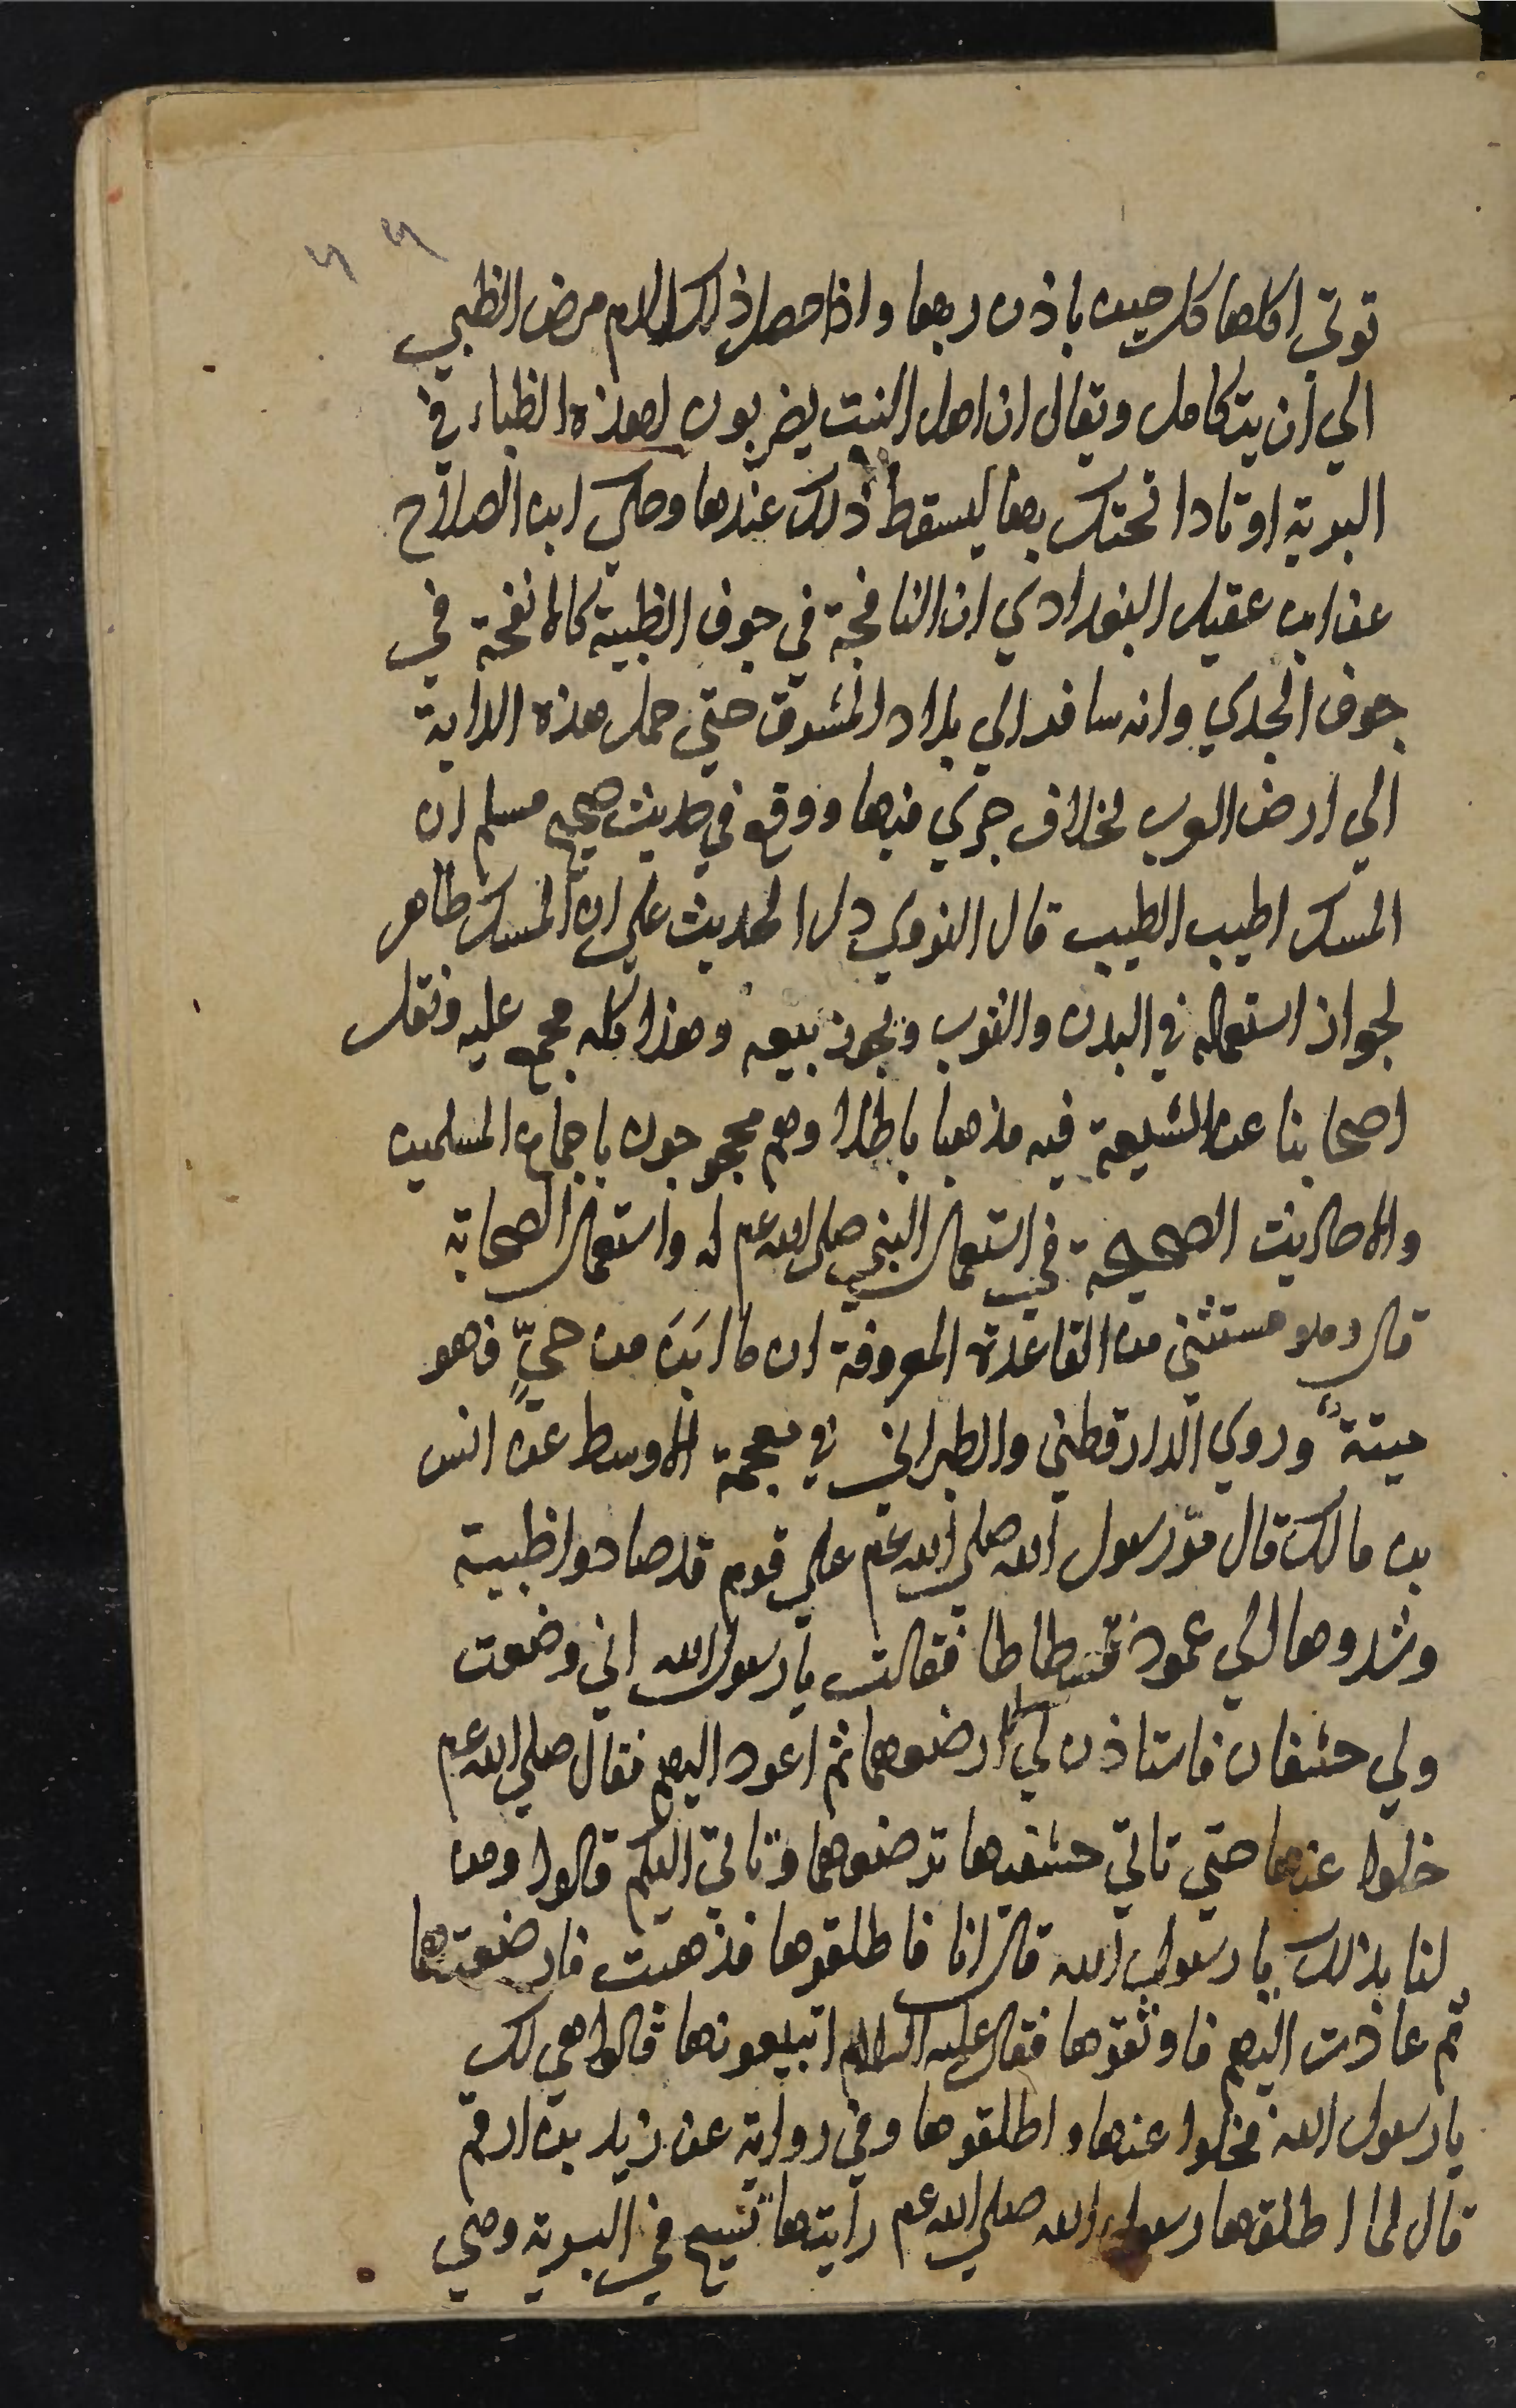 توتي اكلها كل حين باذن ربها واذا حصل ذلك الدم مرض الظبي
الي ان يتكامل ويقال ان اهل التبت يضربون لهذه الظباء في
البرية اوتادا تحتك بها ليسقط ذلك عندها وحكي ابن الصلاح
عن ابن عقيل البغدادي ان النافجة في جوف الظبية كالانفحة في
جوف الجدي وانه سافر الي بلاد المشرق حتي حمل هذه الدابة
الي ارض العرب لخلاف جري فيها ووقع في حديث صحيح مسلم ان
المسك اطيب الطيب قال النووي دل الحديث علي ان المسك طاهر
لجواز استعماله في البدن والثوب ويجوز بيعه وهذا كله مجمع عليه ونقل
اصحابنا عن الشيعة فيه مذهبا باطلا وهم محجوجون باجماع المسلمين
والاحاديث الصحيحة في استعمال النبي صلي الله عم له واستعمال الصحابة
قال وهو مستثني من القاعدة المعروفة ان ما ابين من حيّ فهو
ميتة وروي الدارقطني والطبراني في معجمة الاوسط عن انس
بن مالك قال مرّ رسول الله صلي الله عم علي قوم قد صادوا ظبية
وشدوها الي عمود فسطاطا فقالت يا رسول الله اني وضعت
ولي خشفان فاستاذن لي ارضعهما ثم اعود اليهم فقال صلي الله عم
خلوا عنها حتي تاتي خشفيها ترضعهما وتاتي اليكم قالوا ومن
لنا بذلك يا رسول الله قال انا فاطلقوها فذهبت فارضعتهما
ثم عادت اليهم فاوثقوها فقال عليه السلام اتبيعونها قالوا هي لك
يا رسول الله فخلوا عنها واطلقوها وفي رواية عن زيد بن ارقم
قال لما اطلقها رسول الله صلي الله عم رايتها تسيح في البرية وهي